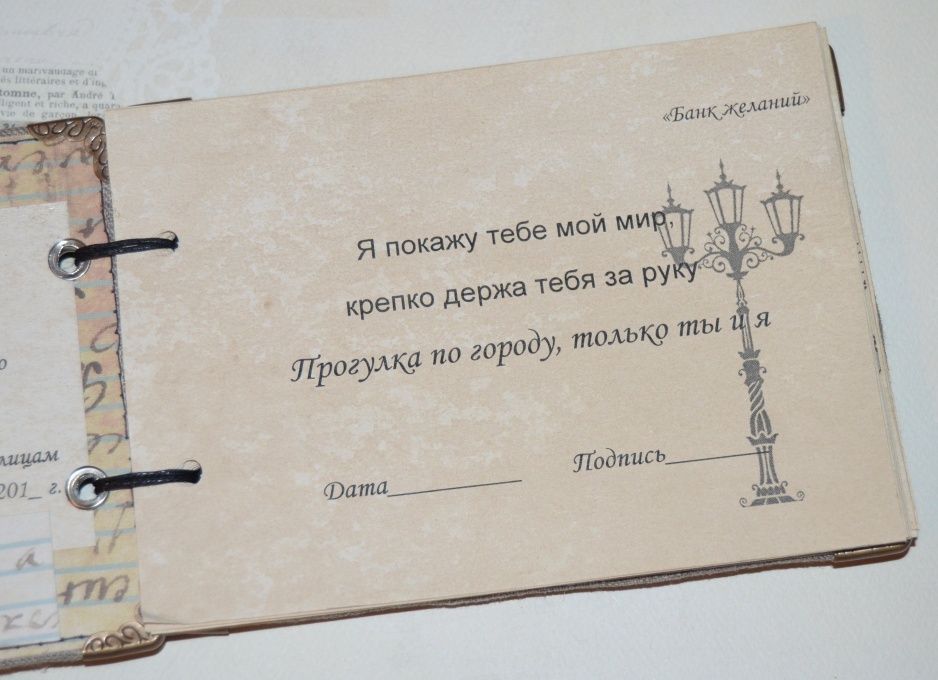 «Банк желаний»
Я покажу тебе мой мир,
крепко держа тебя за руку
Прогулка по городу, только ты и я
Дата__________ Подпись__________
лицам
201_ г.
un marivaudage
littéraires et d'in
tomne, par André
lligent et riche, a quara
vie de garçon